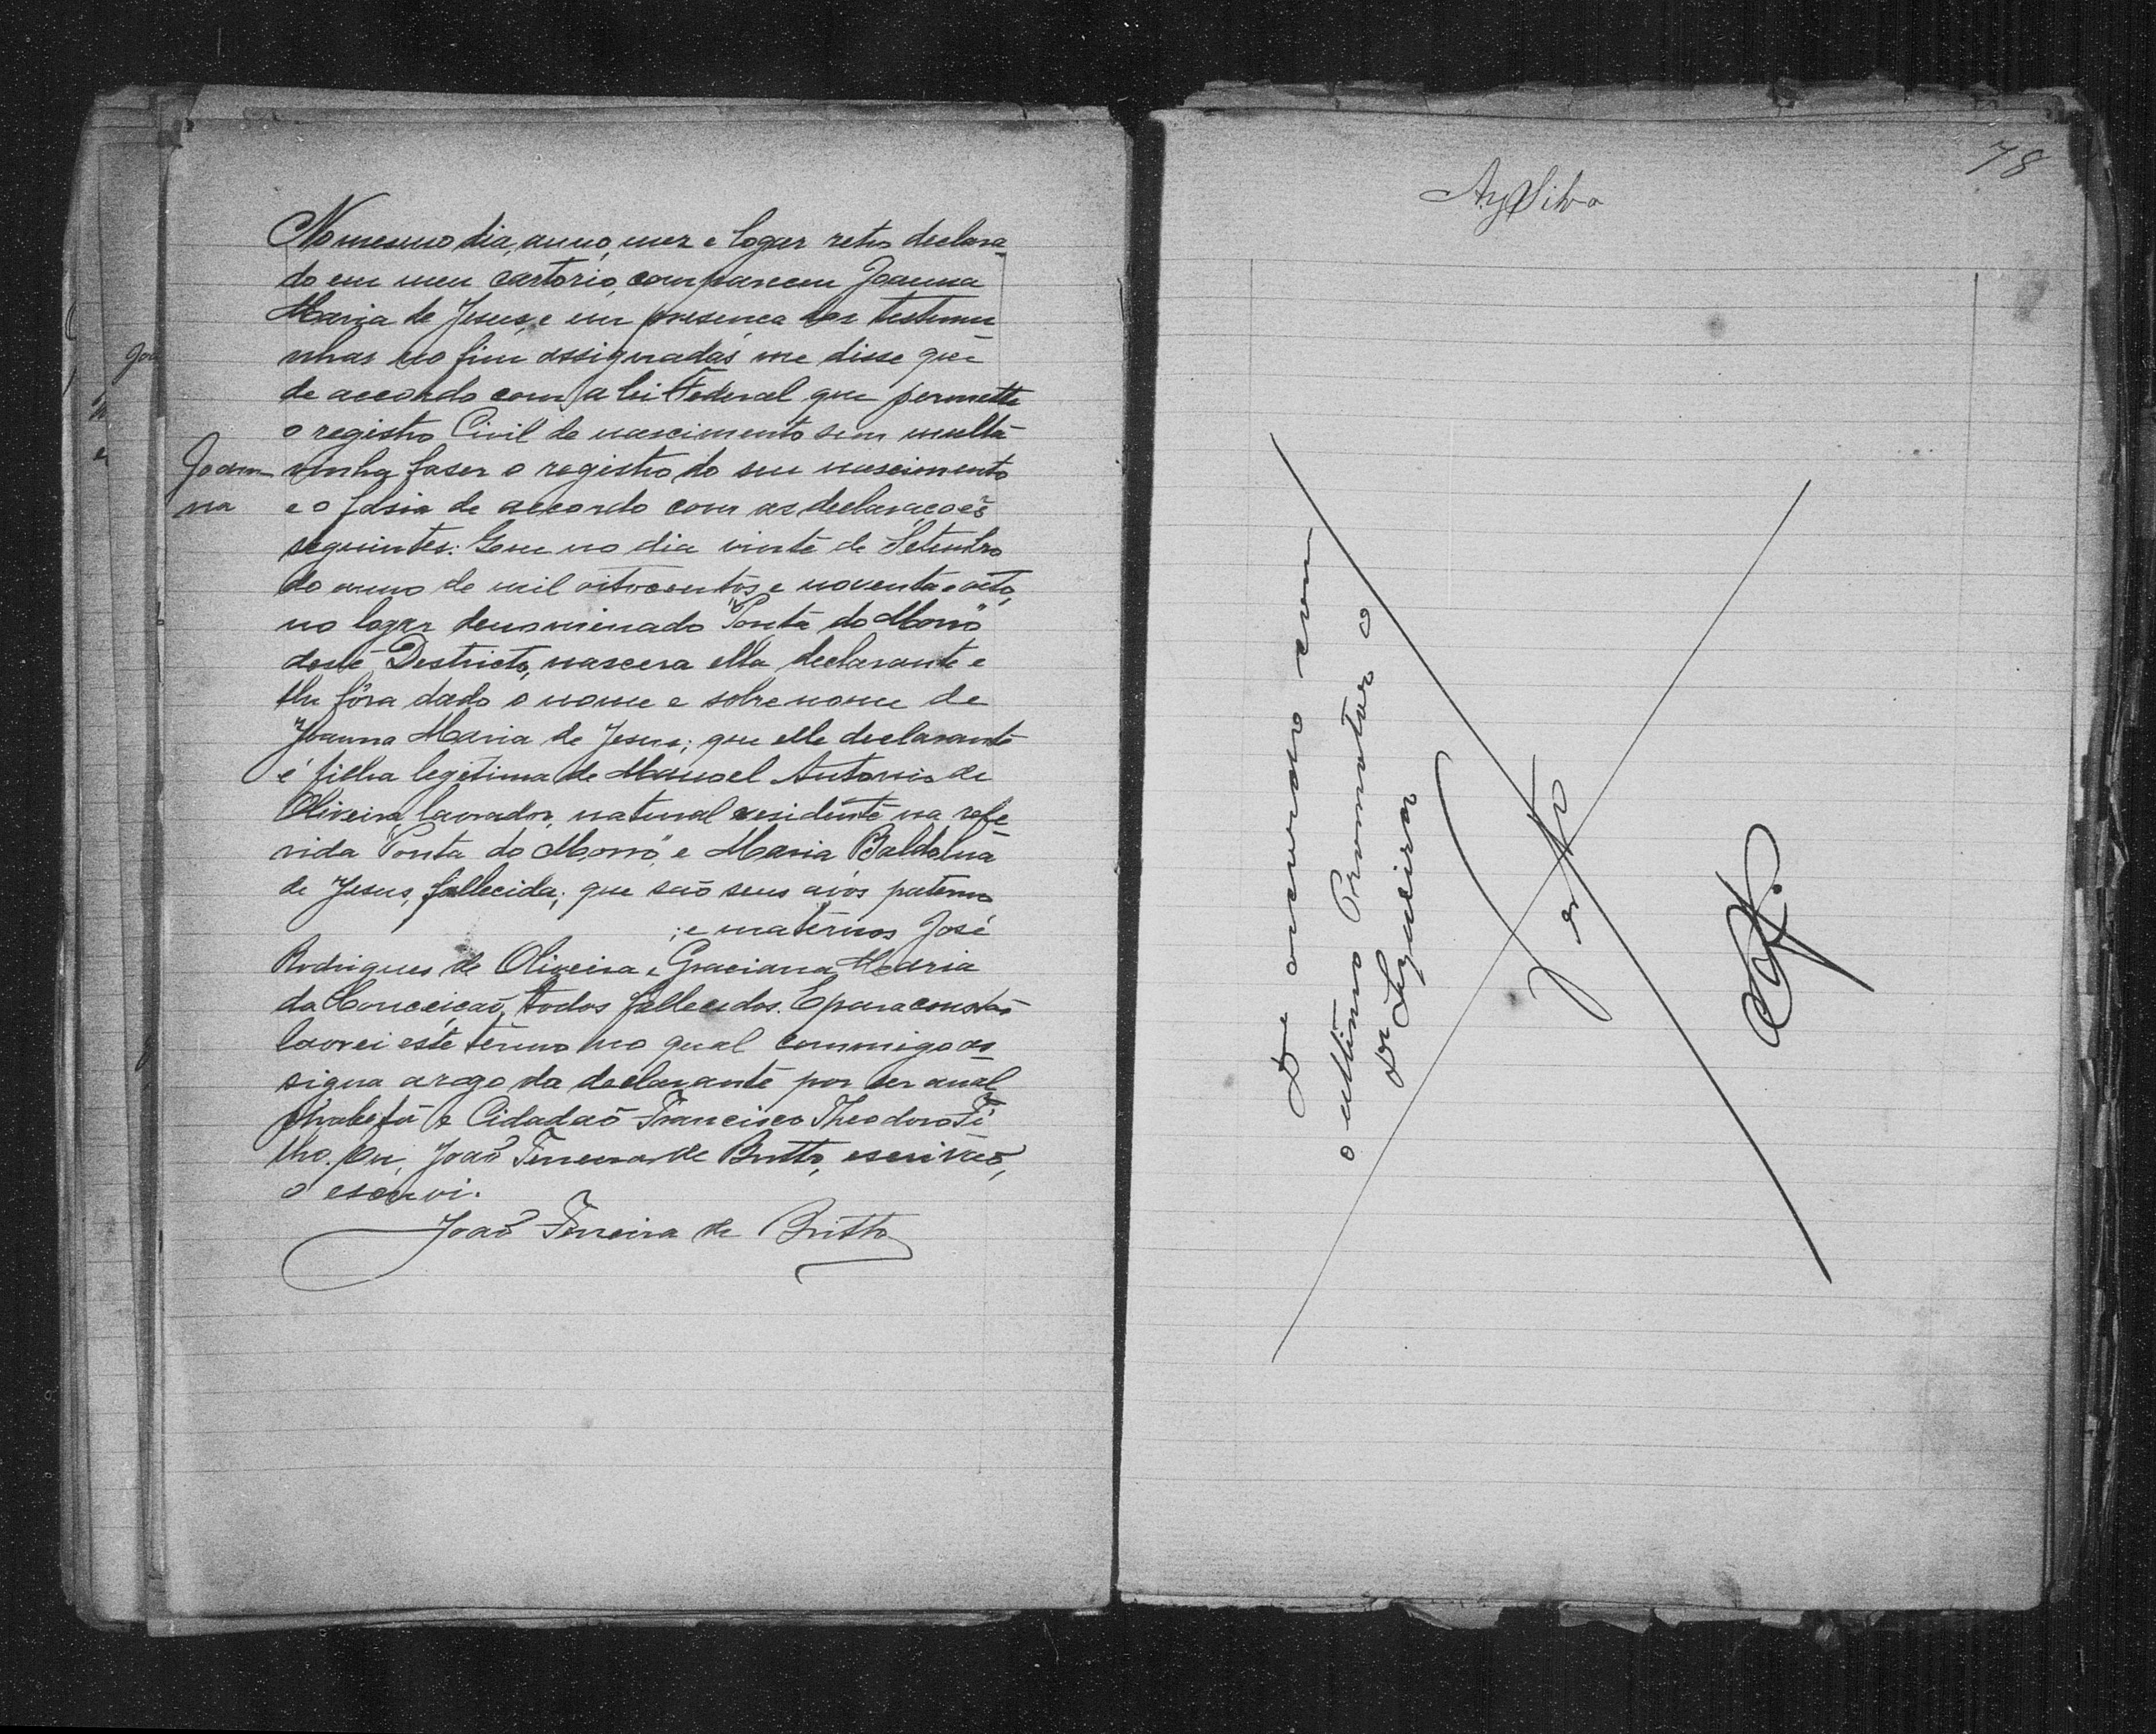 No mesmo dia, anno, mez e logar retro declara
do em meu cartorio, compareceu Joanna
Maria de Jesus, e em presença das testemu
nhas no fim assignadas me disse que
de accordo com a lei Federal que permitte
o registro Civil de nascimento sem multa
Joan
na
vinha faser o registro do seu nascimento
e o fasia de accordo com as declaraçoẽs
seguintes: Que no dia vinte de Setembro
do anno de mil oitrocentos e noventa e oito,
no logar denominado "Ponta do Morro"
deste Destricto, nascera ella declarante e
lhe fôra dado o nome e sobrenome de
Joanna Maria de Jesus; que elle declarante
é filha legitima de Manoel Antonio de
Oliveira, lavrador, natural residente na refe
rida "Ponta do Morro" e Maria
de Jesus, fallecida; que saõ seus avós paterno
; e maternos José
Rodrigues de Oliveira e Graciana Maria
da Conceiçaõ, todos fallecidos. E para constar
lavrei este termo no qual commigo as
signa a rogo da declarante por ser anal
phabeta o Cidadaõ Francisco Theodoro Fi
lho. Eu, Joaõ Ferreira de Britto, escrivaõ,
o escrevi.
Joaõ Ferreira de Britto
78
Silva
De accordo com
o ultimo Promotor o
Dr